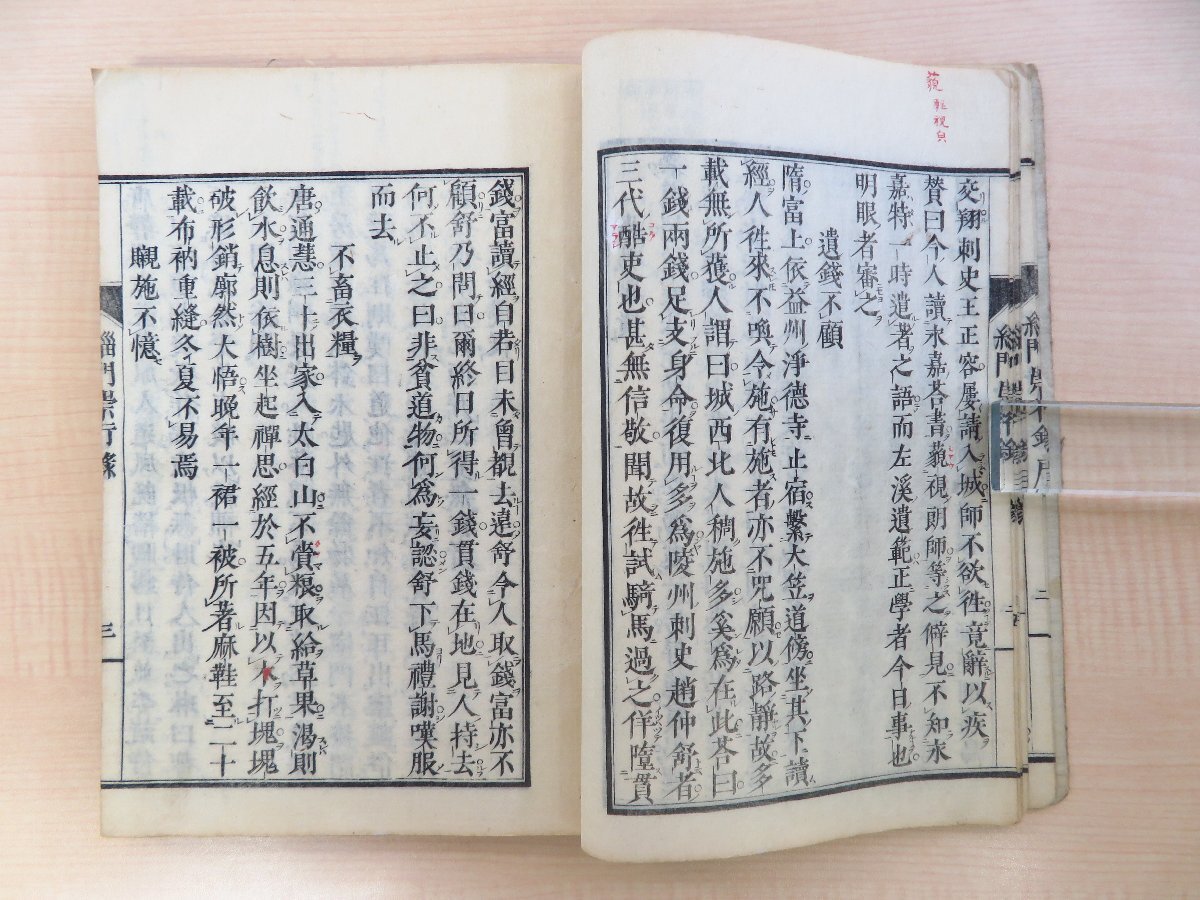 交翔刺史王正容屢請入城師不欲徃竟辭以疾
賛曰今人讀永嘉荅書藐視朗師等之僻見不知永
嘉特一時遣著之語而左溪遺範正學者今日事也
明眼者審之
遺錢不顧
隋富上依益州淨德寺止宿繫大笠道傍坐其下讀
經人徃來不喚令施有施者亦不咒願以路靜故多
載無所獲人謂曰城西北人稠施多奚爲在此荅曰
一錢兩錢足支身命復用多爲陵州刺史趙仲舒者
三代酷吏也甚無信敬聞故徃試騎馬過之佯墮貫
錢富讀經自若目未曾覩去遠舒令人取錢富亦不
顧舒乃問曰爾終日所得一錢貫錢在地見人持去
何不止之曰非貧道物何爲妄認舒下馬禮謝嘆服
而去
不畜衣糧
唐通慧三十出家入太白山不賫粮取給草果渴則
飲水息則依樹坐起禪思經於五年因以木打塊塊
破形銷廓然大悟晚年一裙一被所著麻鞋至二十
載布衲重縫冬夏不易焉
䞋施不憶
緇門崇行錄
三